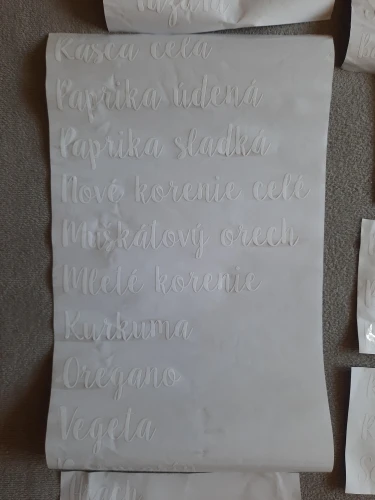 Rasca celá
Paprika údená
Paprika sladká
Nové korenie celé
Muškátový orech
Mleté korenie
Kurkuma
Oregano
Vegeta